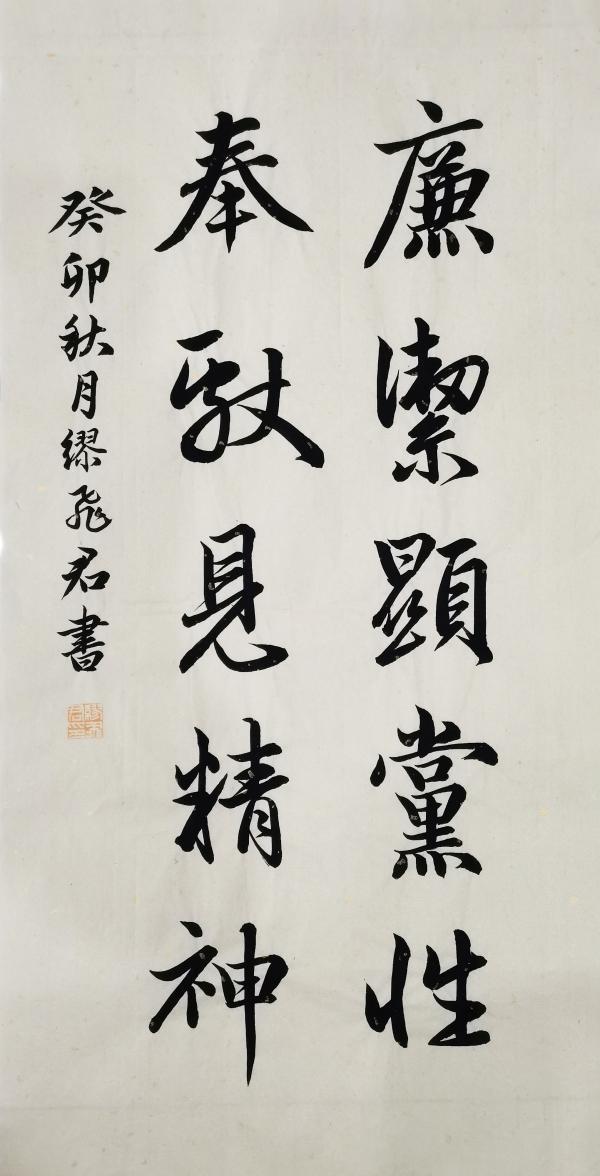 廉潔顯黨性
奉献見精神
癸卯秋月繆飛君書